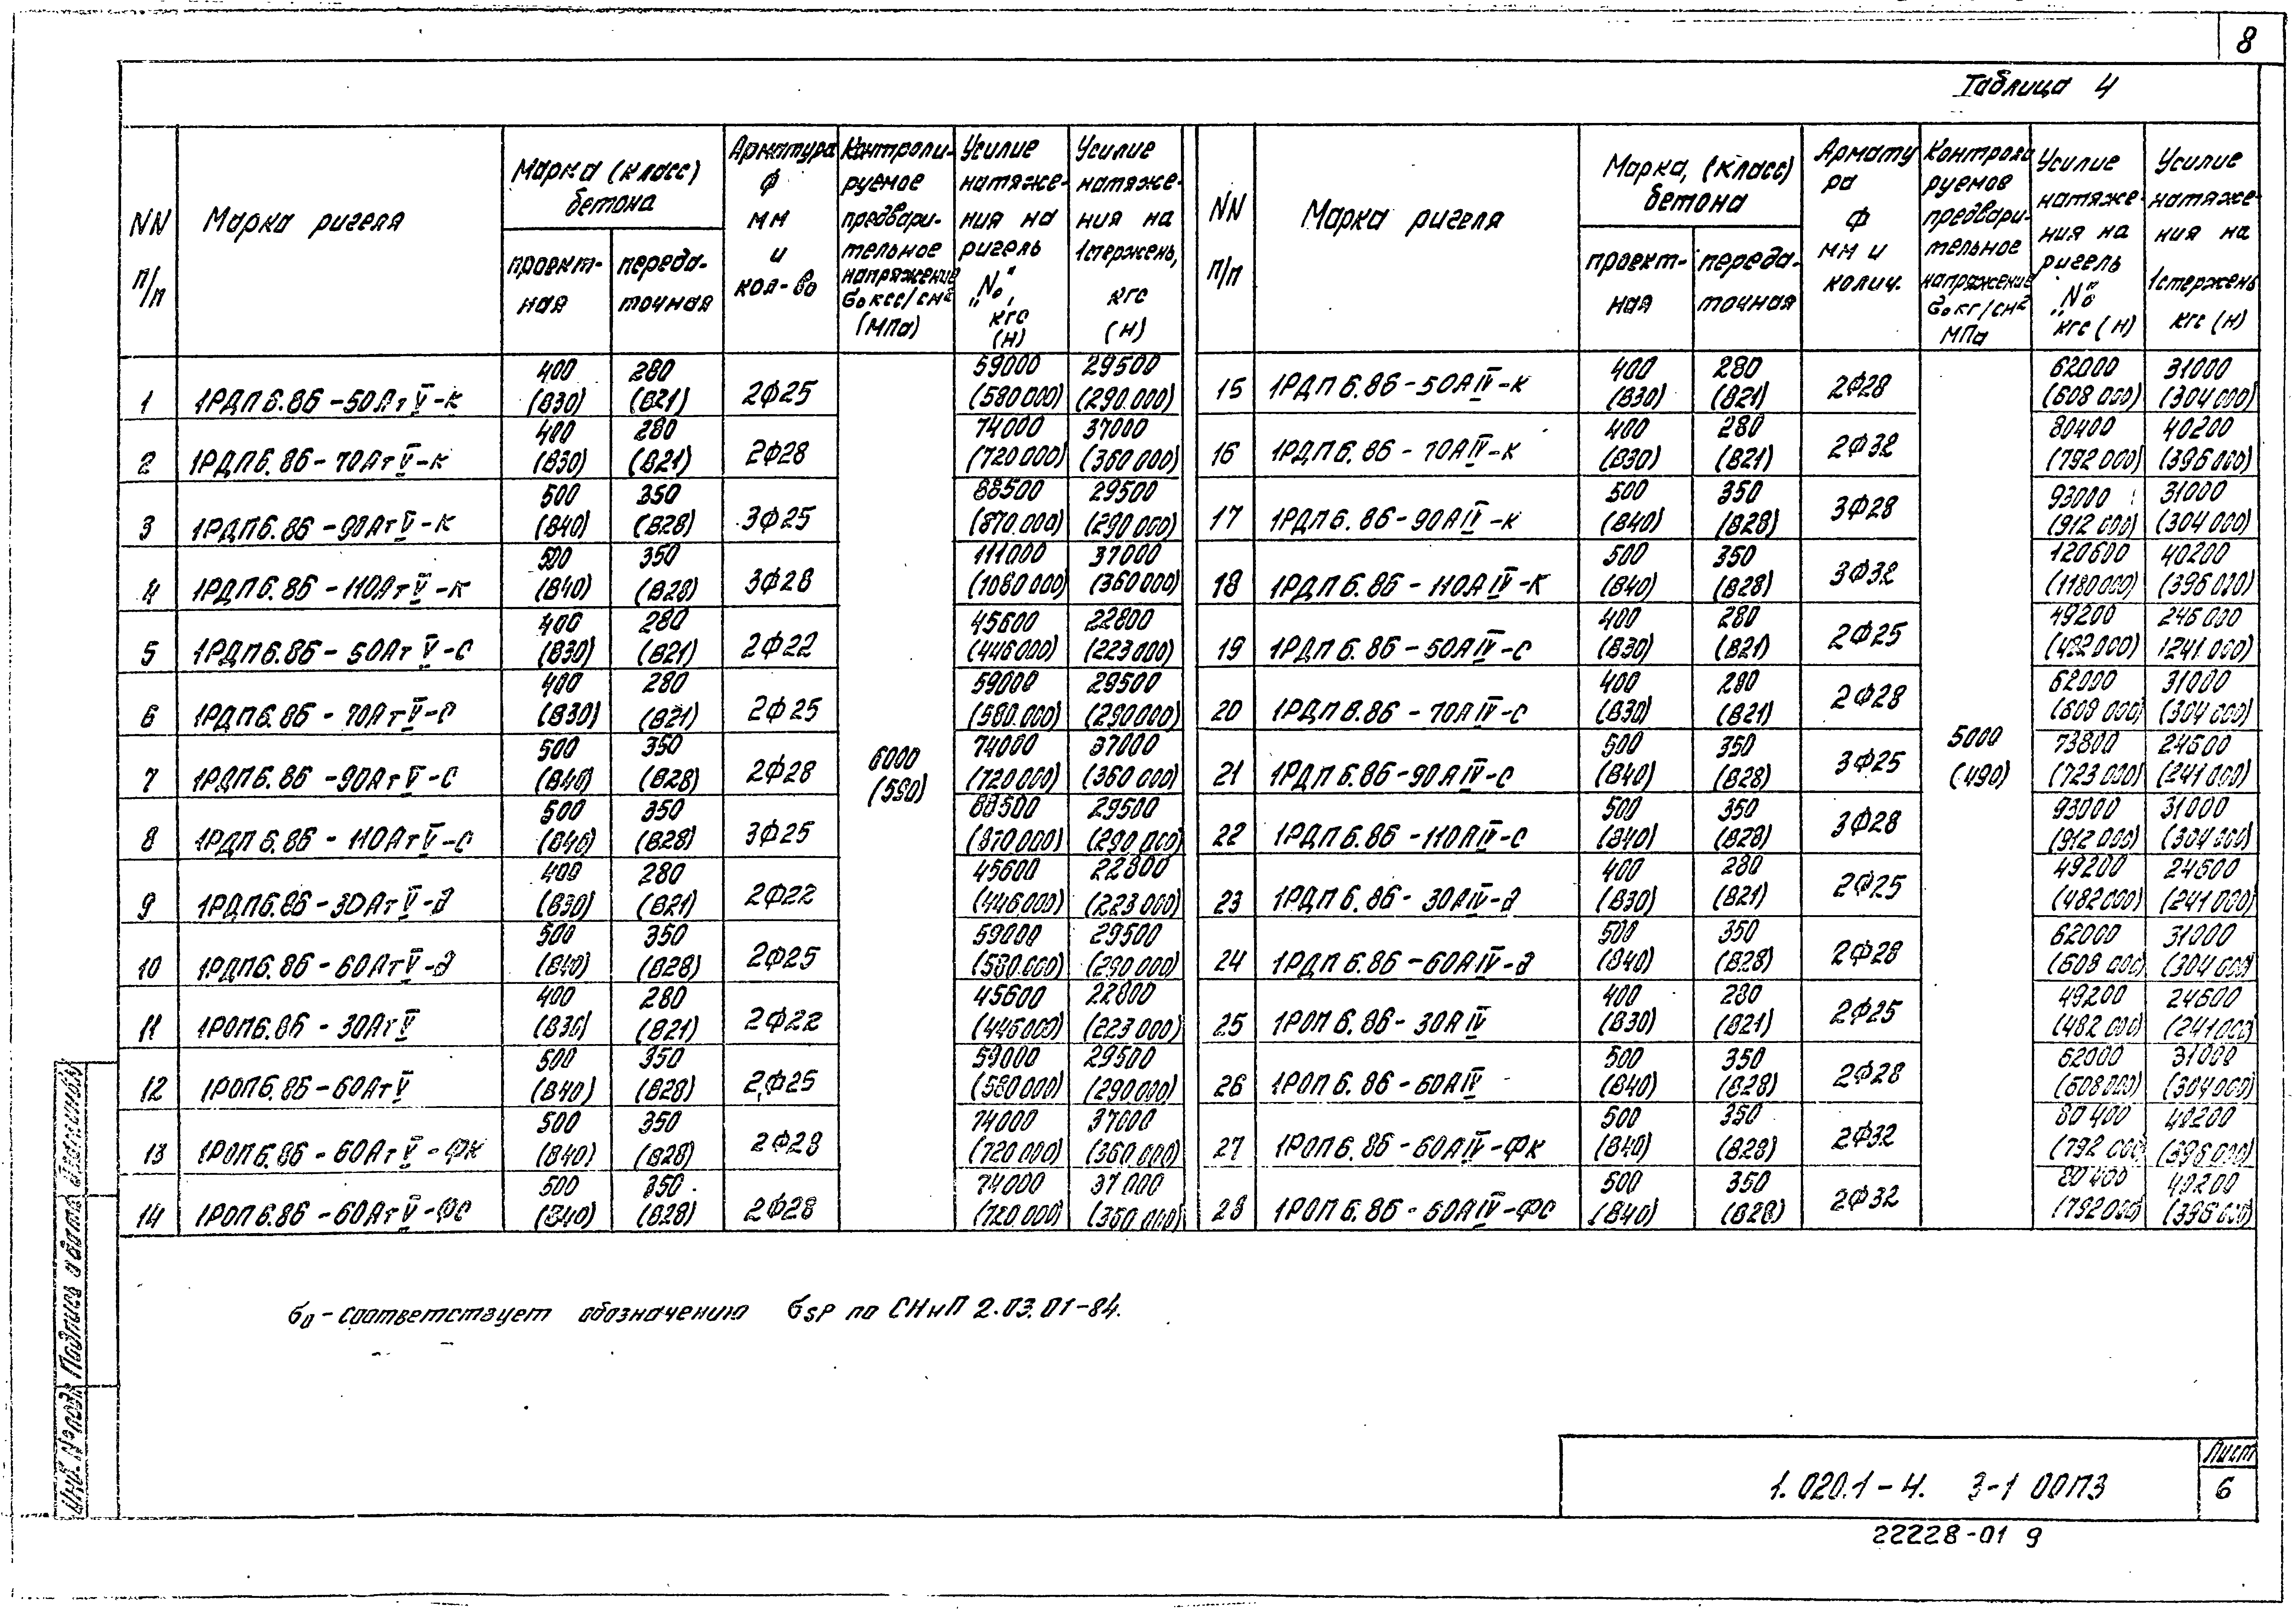 8
Таблица 4
NN п/п | Марка ригеля | Марка (класс) бетона | Арматура ф мм и кол-во | Контроли-руемое предвари-тельное напряжение σ₀ кгс/см² (МПа) | Усилие натяже-ния на ригель „N₀", кгс (н) | Усилие натяже-ния на 1стержень, кгс (н)
проект-ная | переда-точная
1 | 1РДП6.86-50АтV-к | 400 (В30) | 280 (В21) | 2ф25 | 59000 (580000) | 29500 (290.000)
2 | 1РДП6.86-70АтV-к | 400 (В30) | 280 (В21) | 2ф28 | 74000 (720000) | 37000 (360000)
3 | 1РДП6.86-90АтV-к | 500 (В40) | 350 (В28) | 3ф25 | 88500 (870.000) | 29500 (290000)
4 | 1РДП6.86-110АтV-к | 500 (В40) | 350 (В28) | 3ф28 | 111000 (1080000) | 37000 (360000)
5 | 1РДП6.86-50АтV-С | 400 (В30) | 280 (В21) | 2ф22 | 45600 (446000) | 22800 (223000)
6 | 1РДП6.86-70АтV-С | 400 (В30) | 280 (В21) | 2ф25 | 59000 (580.000) | 29500 (290000)
7 | 1РДП6.86-90АтV-С | 500 (В40) | 350 (В28) | 2ф28 | 74000 (720000) | 37000 (360000)
6000 (590)
8 | 1РДП6.86-110АтV-С | 500 (В40) | 350 (В28) | 3ф25 | 88500 (870000) | 29500 (290000)
9 | 1РДП6.86-30АтV-д | 400 (В30) | 280 (В21) | 2ф22 | 45600 (446000) | 22800 (223000)
10 | 1РДП6.86-60АтV-д | 500 (В40) | 350 (В28) | 2ф25 | 59000 (580.000) | 29500 (290000)
11 | 1РОП6.86-30АтV | 400 (В30) | 280 (В21) | 2ф22 | 45600 (446000) | 22800 (223000)
12 | 1РОП6.86-60АтV | 500 (В40) | 350 (В28) | 2ф25 | 59000 (580000) | 29500 (290000)
13 | 1РОП6.86-60АтV-фк | 500 (В40) | 350 (В28) | 2ф28 | 74000 (720000) | 37000 (360000)
14 | 1РОП6.86-60АтV-фс | 500 (В40) | 350 (В28) | 2ф28 | 74000 (720.000) | 37000 (360000)
NN п/п | Марка ригеля | Марка, (класс) бетона | Армату ра ф мм и колич. | Контроли руемое предвари-тельное напряжение σ₀ кг/см² МПа | Усилие натяже-ния на ригель „N₀" кгс (н) | Усилие натяже-ния на 1стержень кгс (н)
проект-ная | переда-точная
15 | 1РДП6.86-50АIV-к | 400 (В30) | 280 (В21) | 2ф28 | 62000 (608000) | 31000 (304000)
16 | 1РДП6.86-70АIV-к | 400 (В30) | 280 (В21) | 2ф32 | 80400 (792000) | 40200 (396000)
17 | 1РДП6.86-90АIV-к | 500 (В40) | 350 (В28) | 3ф28 | 93000 (912000) | 31000 (304000)
18 | 1РДП6.86-110АIV-к | 500 (В40) | 350 (В28) | 3ф32 | 120600 (1180000) | 40200 (396000)
19 | 1РДП6.86-50АIV-С | 400 (В30) | 280 (В21) | 2ф25 | 49200 (482000) | 246000 1241.000)
20 | 1РДП8.86-70АIV-С | 400 (В30) | 280 (В21) | 2ф28 | 62000 (608000) | 31000 (304000)
21 | 1РДП6.86-90АIV-С | 500 (В40) | 350 (В28) | 3ф25 | 73800 (723000) | 24600 (241000)
5000 (490)
22 | 1РДП6.86-110АIV-С | 500 (В40) | 350 (В28) | 3ф28 | 93000 (912000) | 31000 (304000)
23 | 1РДП6.86-30АIV-д | 400 (В30) | 280 (В21) | 2ф25 | 49200 (482000) | 24600 (241000)
24 | 1РДП6.86-60АIV-д | 500 (В40) | 350 (В28) | 2ф28 | 62000 (608000) | 31000 (304000)
25 | 1РОП6.86-30АIV | 400 (В30) | 280 (В21) | 2ф25 | 49200 (482000) | 24600 (241000)
26 | 1РОП6.86-60АIV | 500 (В40) | 350 (В28) | 2ф28 | 62000 (608000) | 31000 (304000)
27 | 1РОП6.86-60АIV-фк | 500 (В40) | 350 (В28) | 2ф32 | 80400 (792000) | 40200 (396000)
28 | 1РОП6.86-60АIV-фс | 500 (В40) | 350 (В28) | 2ф32 | 80400 (792000) | 40200 (396000)
σ₀ - соответствует обозначению σSP по СНиП 2.03.01-84.
Инв. № подл. Подпись и дата
1.020.1-4. 3-1 00ПЗ
Лист
6
22228-01 9